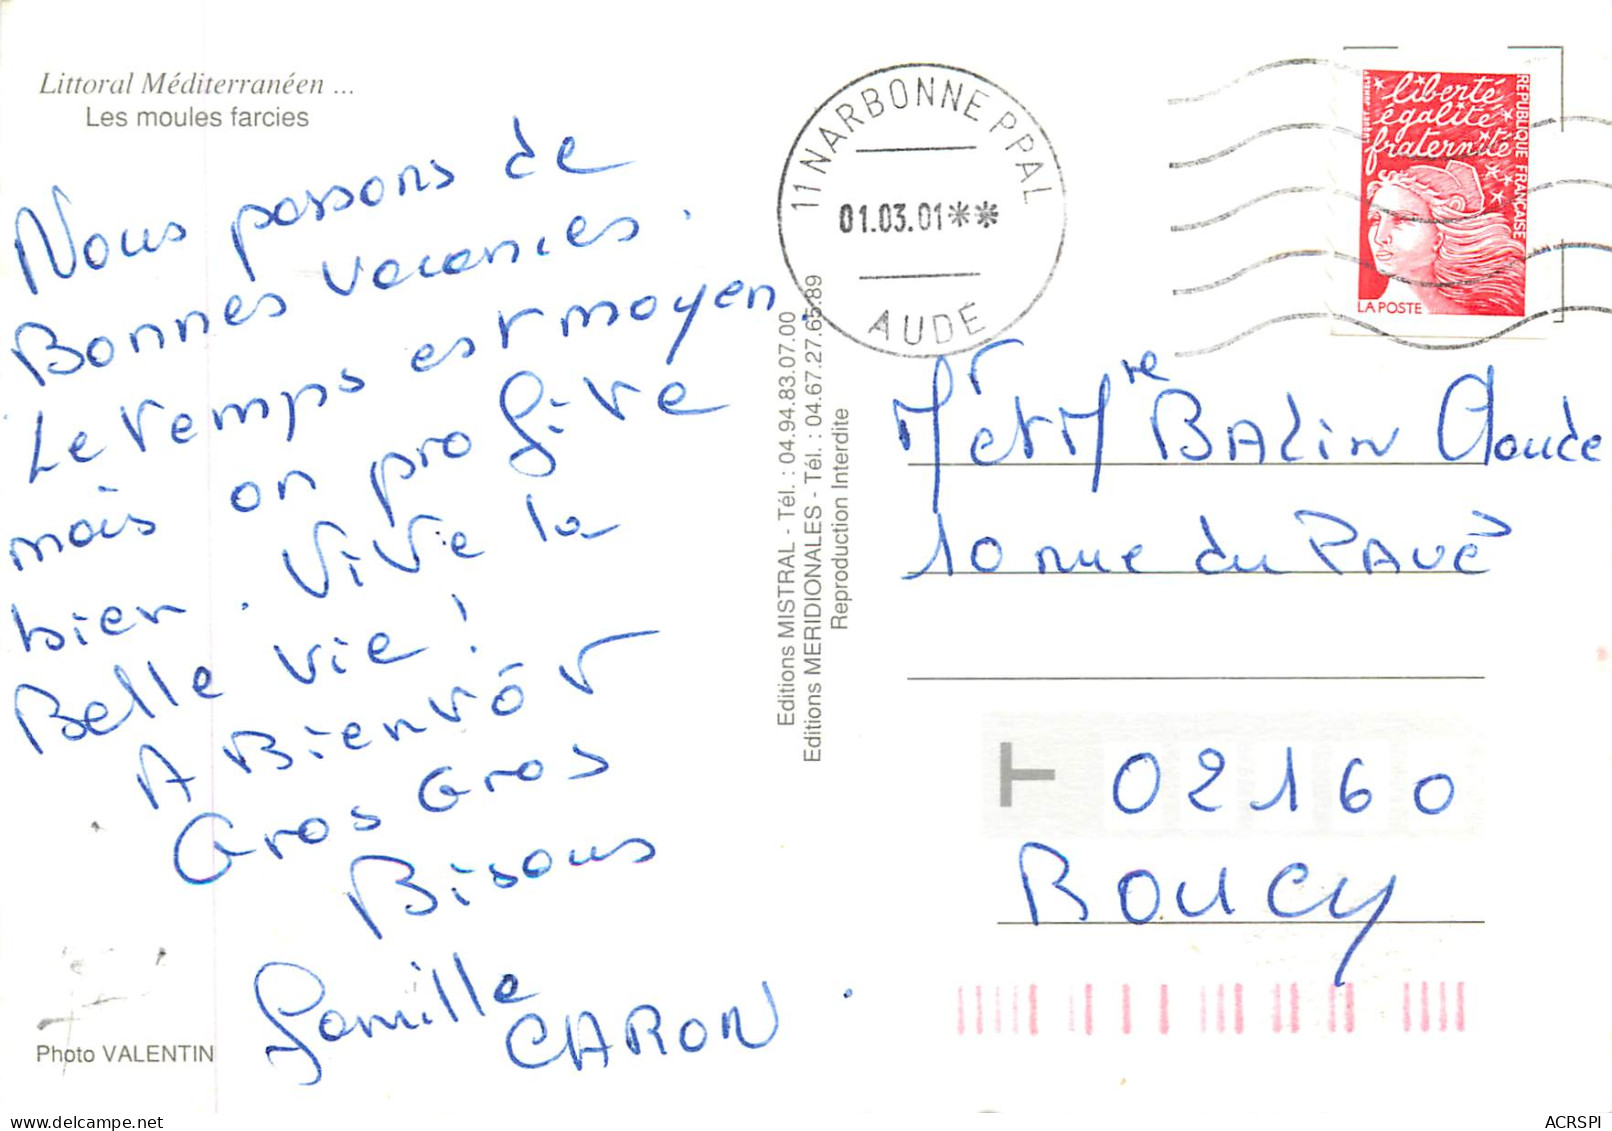 Littoral Méditerranéen ...
Les moules farcies
Nous passons de
Bonnes vacances.
Le temps est moyen
mais on profite
bien. Vive la
Belle vie !
A Bientôt
Gros Gros
Bisous
famille
CARON.
Photo VALENTIN
Editions MISTRAL - Tél. : 04.94.83.07.00
Editions MERIDIONALES - Tél. : 04.67.27.65.89
Reproduction Interdite
11 NARBONNE PPAL
01.03.01**
AUDE
liberté
égalité
fraternité
REPUBLIQUE FRANÇAISE
LA POSTE
Mr et Mme BALIN Claude
10 rue du PAVÉ
T
02160
ROUCY
ACRSPI